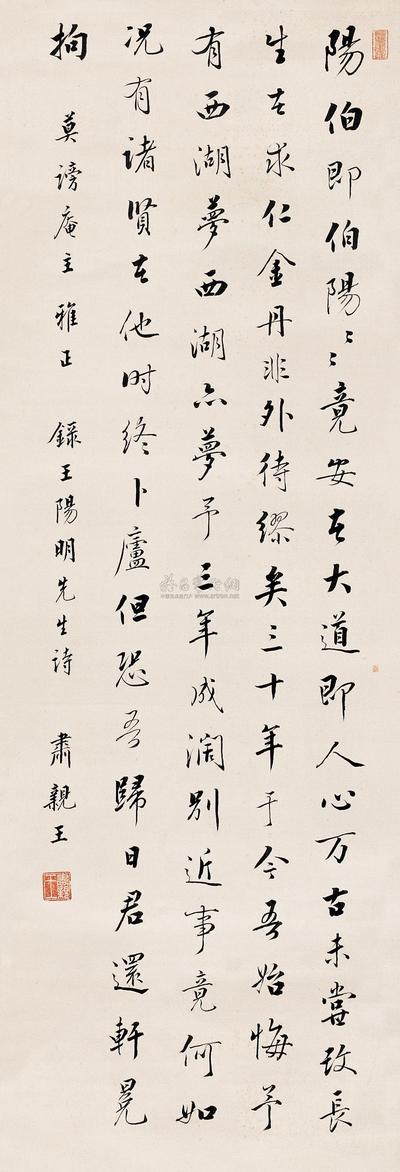 陽伯即伯陽〻〻竟安在大道即人心万古未嘗改長
生在求仁金丹非外待繆矣三十年于今吾始悔予
有西湖夢西湖亦夢予三年成濶別近事竟何如
况有諸賢在他时终卜廬但恐吾歸日君還軒冕
拘
莫謗庵主雅正 錄王陽明先生詩 肅親王